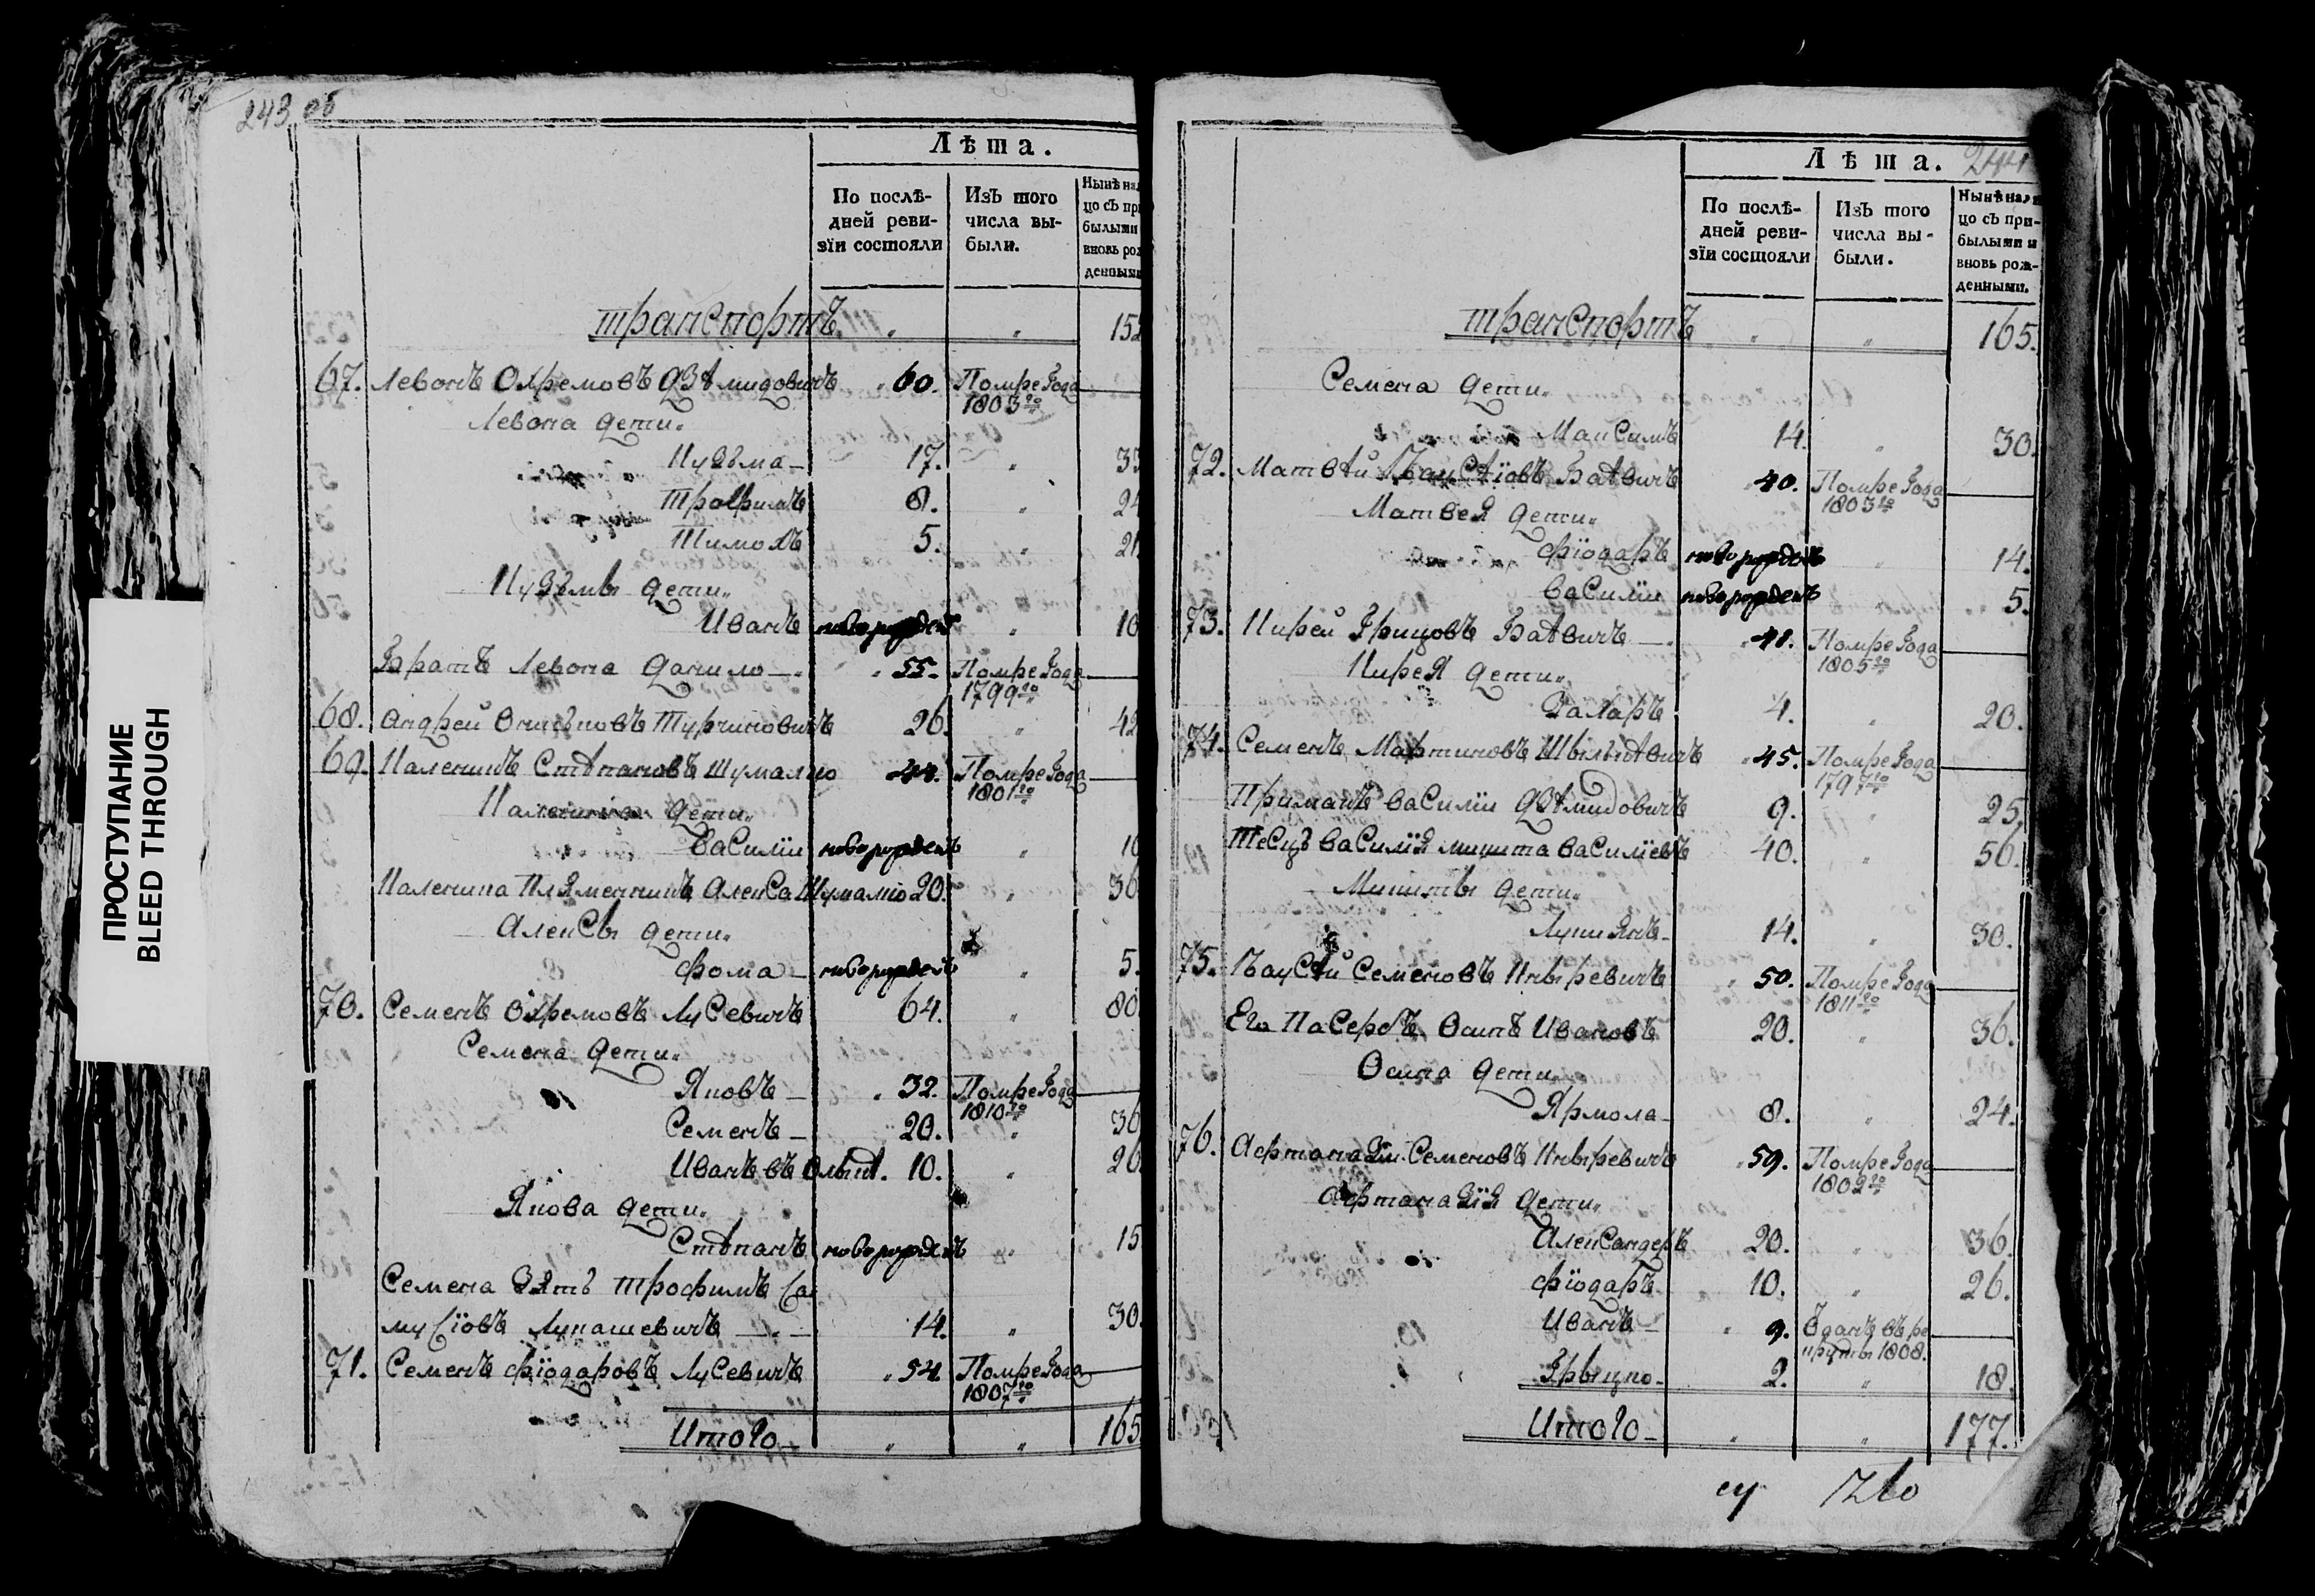 ПРОСТУПАНИЕ
BLEED THROUGH
243 об
Лѣта.
По послѣдней ревизіи состояли
Изъ того числа выбыли.
Нынѣ на
цо съ при
былыми
вновь рож
денными
транспортъ " " 152
67. Левонъ Охремовъ Дзѣмидовичъ 60. Помре Года 1803го
Левона дети.
Кузьма 17. " 33
Трофимъ 8. " 24
Тимохъ 5. " 21
Кузьмы дети.
Иванъ новорожденъ " 10
Братъ Левона Данило 55. Помре Года 1799го
68. Андрей Турчиновичъ 26. " 42
69. Степановъ Шумало 44. Помре Года 1801го
дети.
Василіи новорожденъ " 10
Племенникъ Алекса Шумало 20. " 36
Алексы дети.
Фома новорожденъ " 5.
70. Семенъ Охремовъ Лусевичъ 64. " 80
Семена дети.
Яковъ 32. Помре Года 1810го
Семенъ 20. " 36
Иванъ въ 10. " 26
Якова дети.
Стѣпанъ новорожденъ " 15
Семена Зять Трофимъ Са
мусіовъ Лукашевичъ 14. " 30.
71. Семенъ Фіодаровъ Лусевичъ 54. Помре Года 1807го
Итого " " 165
244
Лѣта.
По послѣдней ревизіи состояли
Изъ того числа выбыли.
Нынѣ нали
цо съ при-
былыми и
вновь рож-
денными.
транспортъ " " 165.
Семена дети.
Максимъ 14. " 30.
72. Матвѣй 40. Помре Года 1803го
Матвея дети.
Фіодаръ новорожденъ " 14.
Василіи новорожденъ " 5.
73. Кирей Грицовъ 41. Помре Года 1805го
Кирея дети.
Захаръ 4. " 20.
74. Семенъ Мартиновъ 45. Помре Года 1797го
Примакъ Василіи Дзѣмидовичъ 9. " 25.
Тесць Василія Микита Василіевъ 40. " 56.
Микиты дети.
Лукіянъ 14. " 30.
75. Евсѣй Семеновъ 50. Помре Года 1811го
Его Пасербъ Осипъ Ивановъ 20. " 36.
Осипа дети.
Ярмола 8. " 24.
76. Афтаназіи Семеновъ 59. Помре Года 1802го
Афтаназія дети.
Александеръ 20. " 36.
Фіодаръ 10. " 26.
Иванъ 9. Зданъ въ рекруты 1808.
Грыцко 2. " 18.
Итого " " 177.